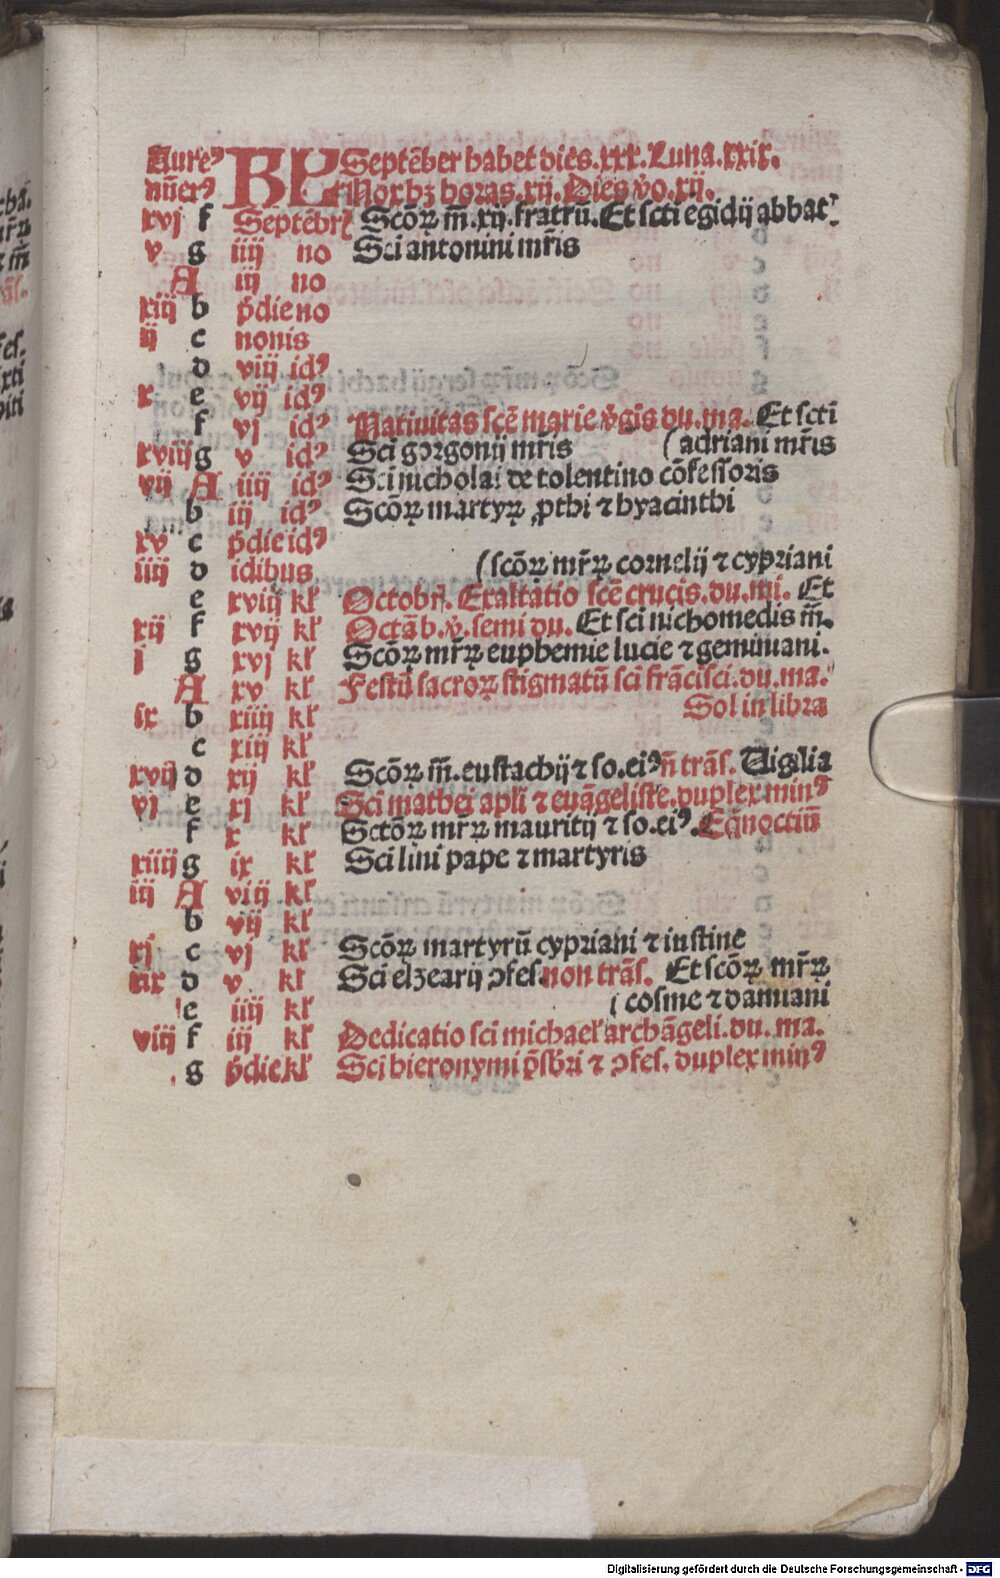 Aureꝰ KL Septēber habet dies.xxx.Luna.xxix.
nūerꝰ Nox hꝫ horas.xij.Dies v̄o.xij.
xvj f Septēbrꝭ Scōꝝ m̄.xij.fratrū.Et scti egidij abbat
v g iiij no Sci antonini mr̄is
A iij no
xiij b p̄die no
ij c nonis
d viij idꝰ
x e vij idꝰ
f vj idꝰ Natiuitas scē marie v̄gis du.ma. Et scti
xviij g v idꝰ Sci gorgonij mr̄is (adriani mr̄is
vij A iiij idꝰ Sci nicholai de tolentino cōfessoris
b iij idꝰ Scōꝝ martyꝝ ꝓthi ⁊ hyacinthi
xv c p̄die idꝰ
iiij d idibus (scōꝝ mr̄ꝝ cornelij ⁊ cypriani
e xviij kl̄ Octobr̄. Exaltatio scē crucis.du.mi. Et
xij f xvij kl̄ Octā b.v̄.semi du. Et sci nichomedis m̄.
j g xvj kl̄ Scōꝝ mr̄ꝝ euphemie lucie ⁊ geminiani.
A xv kl̄ Festū sacroꝝ stigmatū sci frācisci.du.ma.
ix b xiiij kl̄ Sol in libra
c xiij kl̄
xvij d xij kl̄ Scōꝝ m̄.eustachij ⁊ so.eiꝰ n̄ trās. Uigilia
vj e xj kl̄ Sci mathei apli ⁊ euāgeliste.duplex minꝰ
f x kl̄ Sctōꝝ mr̄ꝝ mauritij ⁊ so.eiꝰ. Eq̄noctiū
xiiij g ix kl̄ Sci lini pape ⁊ martyris
iij A viij kl̄
b vij kl̄
xj c vj kl̄ Scōꝝ martyrū cypriani ⁊ iustine
xix d v kl̄ Sci elzearij ꝯfes.non trās. Et scōꝝ mr̄ꝝ
e iiij kl̄ (cosme ⁊ damiani
viij f iij kl̄ Dedicatio sci michael̄ archāgeli.du.ma.
g p̄die kl̄ Sci hieronymi p̄sbri ⁊ ꝯfes. duplex minꝰ
Digitalisierung gefördert durch die Deutsche Forschungsgemeinschaft - DFG